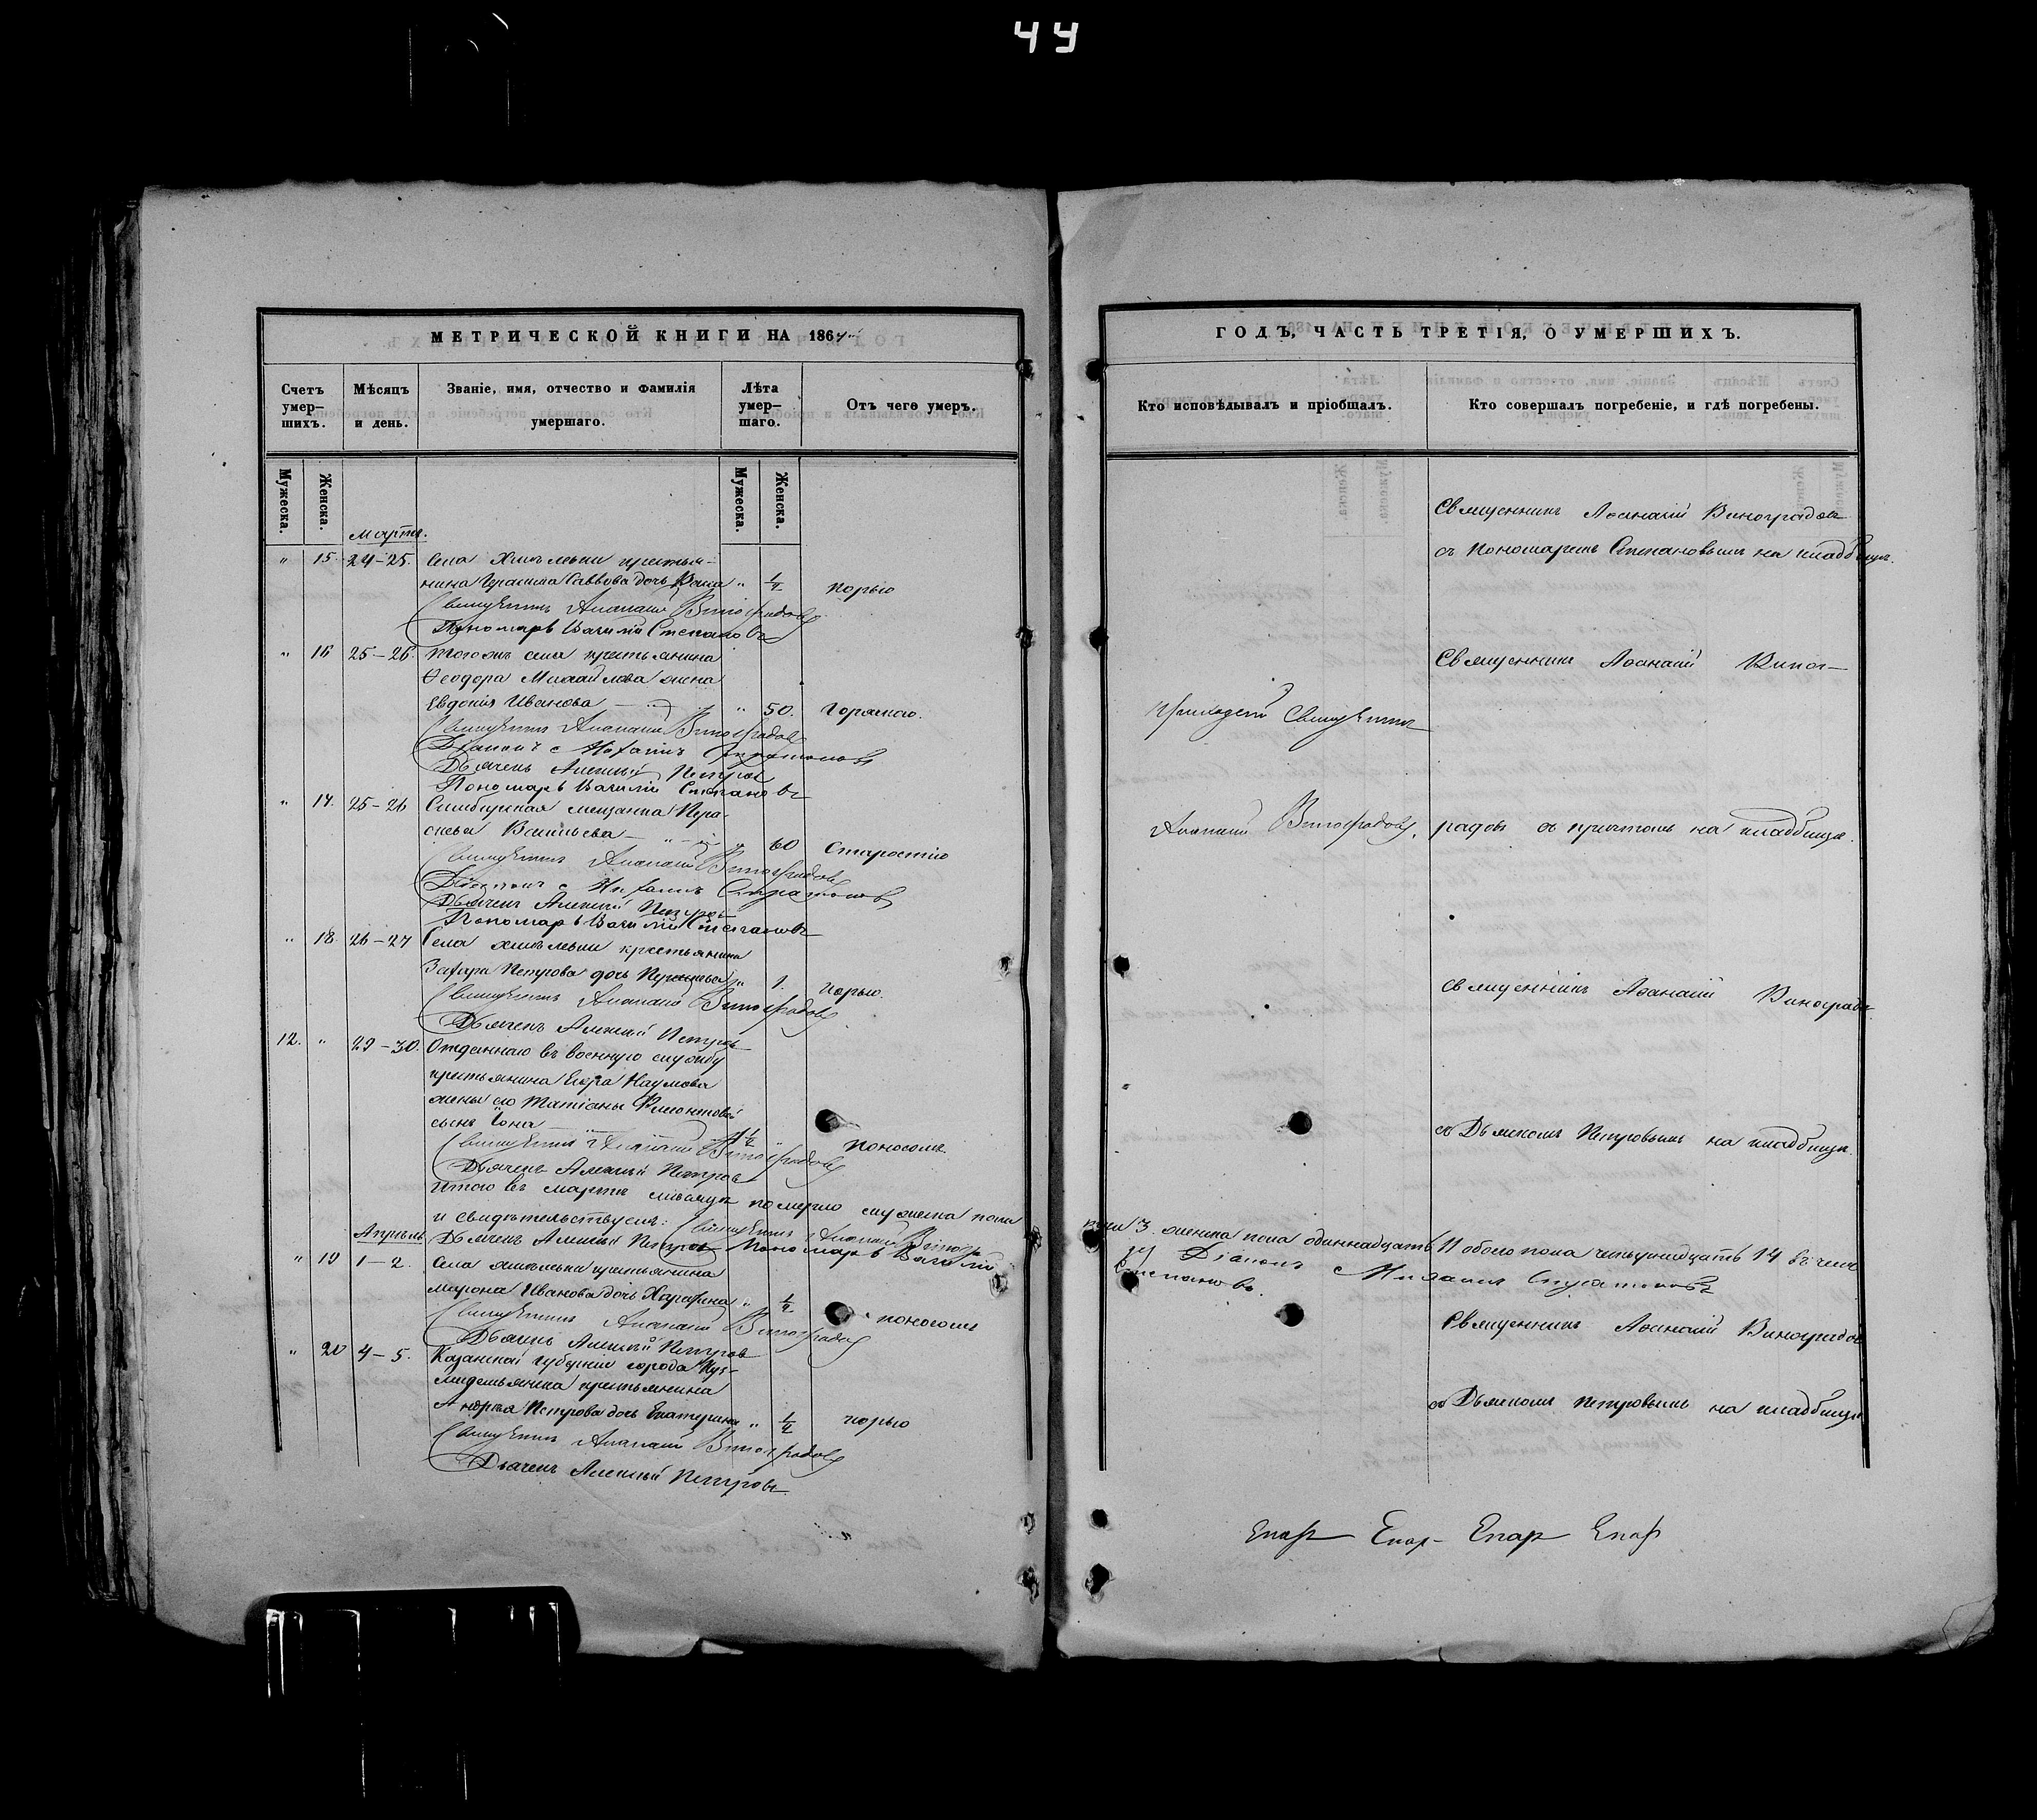 44
МЕТРИЧЕСКОЙ КНИГИ НА 1864й
Счетъ умер-шихъ.
Мѣсяцъ и день.
Званіе, имя, отчество и фамилія умершаго.
Лѣта умер-шаго.
Отъ чего умеръ.
Мужеска.
Женска.
Мужеска.
Женска.
Марта.
" 15. 24-25. Села крестья-
нина Герасима Саввова дочь " 1/2 корью
Священникъ Аѳанасій Виноградовъ
Пономарь Василій Степановъ
" 16 25-26. Тогожъ села крестьянина
Ѳеодора Михайлова жена
Евдокія Иванова " 50. Горячкою.
Священникъ Аѳанасій Виноградовъ
Діаконъ
Дьячекъ Алексѣй Петровъ
Пономарь Василій Степановъ
" 17. 25-26 Симбирская мещанка Пара-
скева Васильева " 60 Старостію
Священникъ Аѳанасій Виноградовъ
Діаконъ
Дьячекъ Алексѣй Петровъ
Пономарь Василій Степановъ
" 18. 26-27 Села крестьянина
Захара Петрова дочь " 1. корью.
Священникъ Аѳанасій Виноградовъ
Дьячекъ Алексѣй Петровъ
12. " 29-30. Отданнаго въ военную службу
крестьянина Егора Наумова
жены его Татіаны
сынъ Іона 1 1/2 " поносомъ
Священникъ Аѳанасій Виноградовъ
Дьячекъ Алексѣй Петровъ
Итого въ мартѣ мѣсяцѣ померло мужеска пола
и свидѣтельствуемъ: Священникъ Аѳанасій
Апрѣль Дьячекъ Алексѣй Петровъ Пономарь Василій
" 19 1-2. Села крестьянина
Мирона Иванова дочь " 1/2 поносомъ
Священникъ Аѳанасій Виноградовъ
Дьячекъ Алексѣй Петровъ
" 20 4-5. Казанской губерніи города Куз-
мидемьянска крестьянина
Андрея Петрова дочь Екатерина " 1/2 корью
Священникъ Аѳанасій Виноградовъ
Дьячекъ Алексѣй Петровъ
ГОДЪ, ЧАСТЬ ТРЕТІЯ, О УМЕРШИХЪ.
Кто исповѣдывалъ и пріобщалъ.
Кто совершалъ погребеніе, и гдѣ погребены.
Священникъ Аѳанасій Виноградовъ
съ пономаремъ Степановымъ на кладбищѣ.
Священникъ Аѳанасій Виног-
Приходскій Священникъ
Аѳанасій Виноградовъ. радовъ съ причтомъ на кладбищѣ.
Священникъ Аѳанасій Виноградовъ
съ Дьячкомъ Петровымъ на кладбищѣ.
3 женска пола одиннадцать 11 обоего пола четырнадцать 14 въ чемъ
Діаконъ
Степановъ.
Священникъ Аѳанасій Виноградовъ
съ Дьячкомъ Петровымъ на кладбищѣ
Епар Епар- Епар Епар